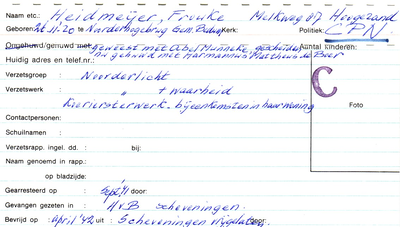 Naam etc.: Heidmeijer, Frouke Melkweg 87 Hoogezand
Geboren: 22.11.'20 te Kerk: Politiek: CPN
Gehuwd/gehuwd met: geweest met Abel Munneke, gescheiden Aantal kinderen:
Huidig adres en telef.nr.: nu gehuwd met Harmannus Mattheus de Boer
Verzetsgroep : Noorderlicht C
Verzetswerk : " + waarheid
Koerierswerk. bijeenkomsten in haar woning
Foto
Contactpersonen:
Schuilnamen :
Verzetsrapp. ingel. dd. : bij:
Naam genoemd in rapp.:
op bladzijde:
Gearresteerd op : Sept '41 door:
Gevangen gezeten in : HvB Scheveningen.
Bevrijd op : april '42 uit : Scheveningen vrijgelaten. door: